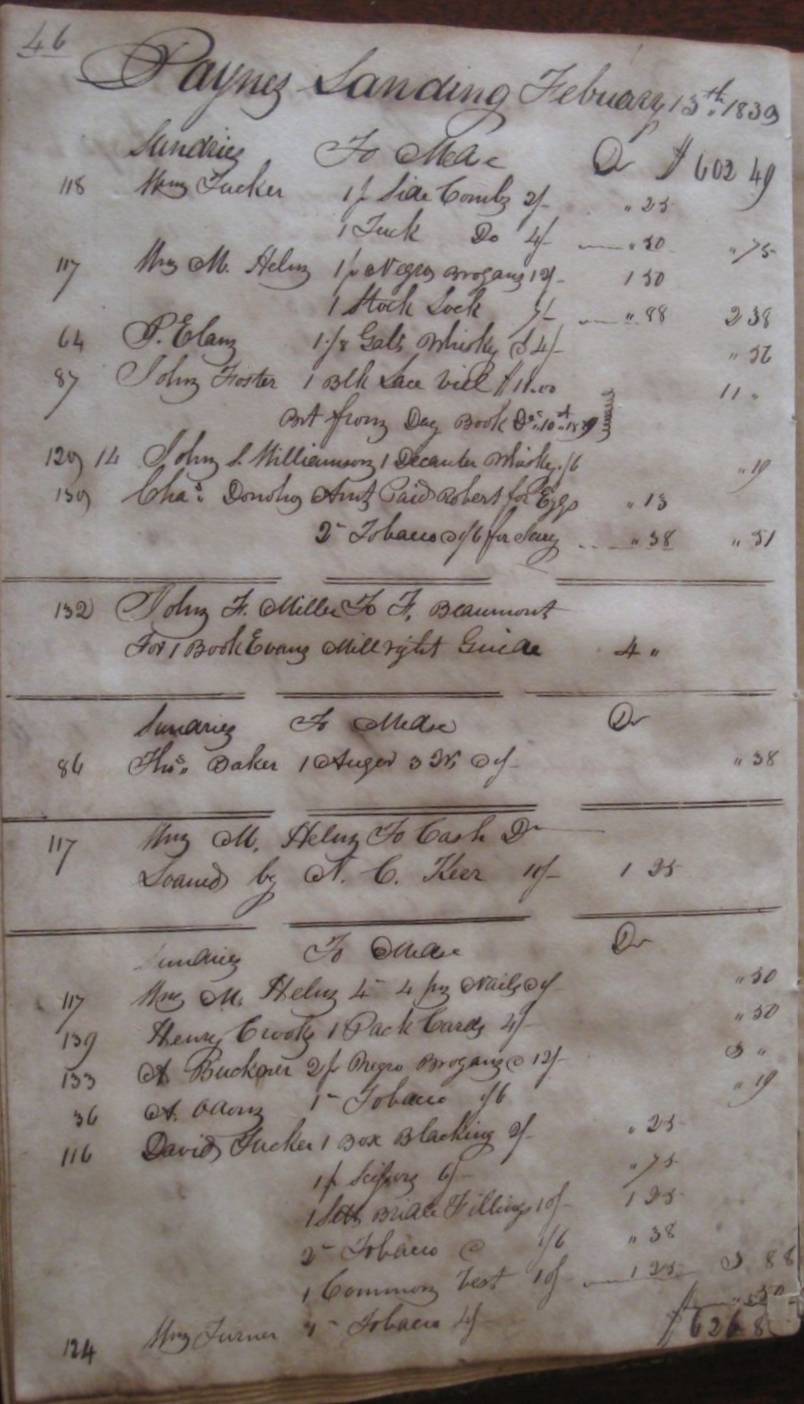 46
Paynes Landing February 15th 1839
Sundries To Mdse Dr $602 49
118 Wm Tucker 1 p Side Combs 2/- " 25
1 Tuck Do 4/- " 50 " 75
117 Wm M. Helms 1 p Negro Brogans 12/- 1 50
1 Stock Lock 7/- " 88 2 38
64 P. Elam 1/8 Gals Whisky @ 4/-
87 John Foster 1 Blk Lace Viel $11.00 11 "
Brt from Day Book
129 14 John S. Williamson 1 Decanter Whisky 1/6 " 19
139 Chas. Donoho Amt Paid Robert for Eggs " 13
2 - Tobacco 1/6 for " 38 " 51
132 John F. Miller To F. Beaumont
For 1 Book Evans Millright Guide 4 "
Sundries To Mdse Dr
86 Thos. Baker 1 Auger " 38
117 Wm M. Helms To Cash Dr
Loaned by N. C. Keer 10/- 1 25
Sundries To Mdse Dr
117 Wm M. Helms 4 - 4 py Nails " 50
139 Henry Crooks 1 Pack Cards 4/- " 50
133 A Buckner 2 p Negro Brogans @ 12/- 3 "
36 A. Odom 1 - Tobacco 1/6 " 19
116 David Tucker 1 Box Blacking 2/- " 25
1 p Scissors 6/- " 75
1 Sett Bridle Fillings 10/- 1 25
2 - Tobacco @ 1/6 " 38
1 Common Vest 10/- 1 25 3 88
124 Wm Turner Tobacco 4/- " 50